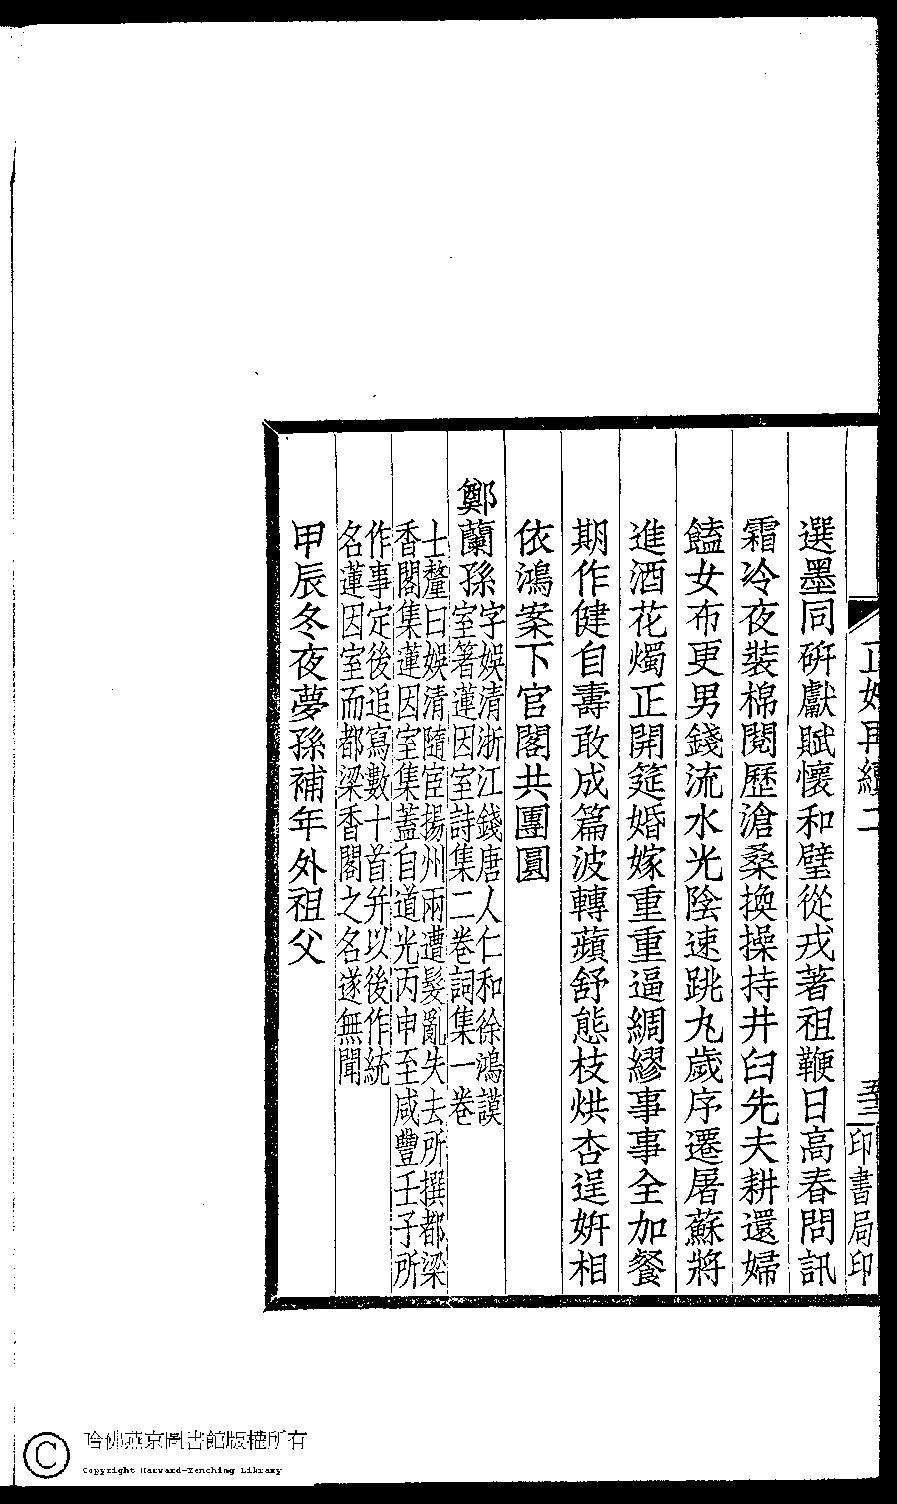 正始再續二
印書局印
選墨同硏獻賦懷和璧從戎著祖鞭日高春問訊
霜冷夜裝棉閱歷滄桑換操持井臼先夫耕還婦
饁女布更男錢流水光陰速跳丸歲序遷屠蘇將
進酒花燭正開筵婚嫁重重逼綢繆事事全加餐
期作健自壽敢成篇波轉蘋舒態枝烘杏逞姸相
依鴻案下官閣共團圓
鄭蘭孫字娛清浙江錢唐人仁和徐鴻謨
室箸蓮因室詩集二卷詞集一卷
士釐曰娛清隨宦揚州兩遭髮亂失去所撰都梁
香閣集蓮因室集蓋自道光丙申至咸豐壬子所
作事定後追寫數十首并以後作統
名蓮因室而都梁香閣之名遂無聞
甲辰冬夜夢孫補年外祖父
哈佛燕京圖書館版權所有
Copyright Harvard-Yenching Library